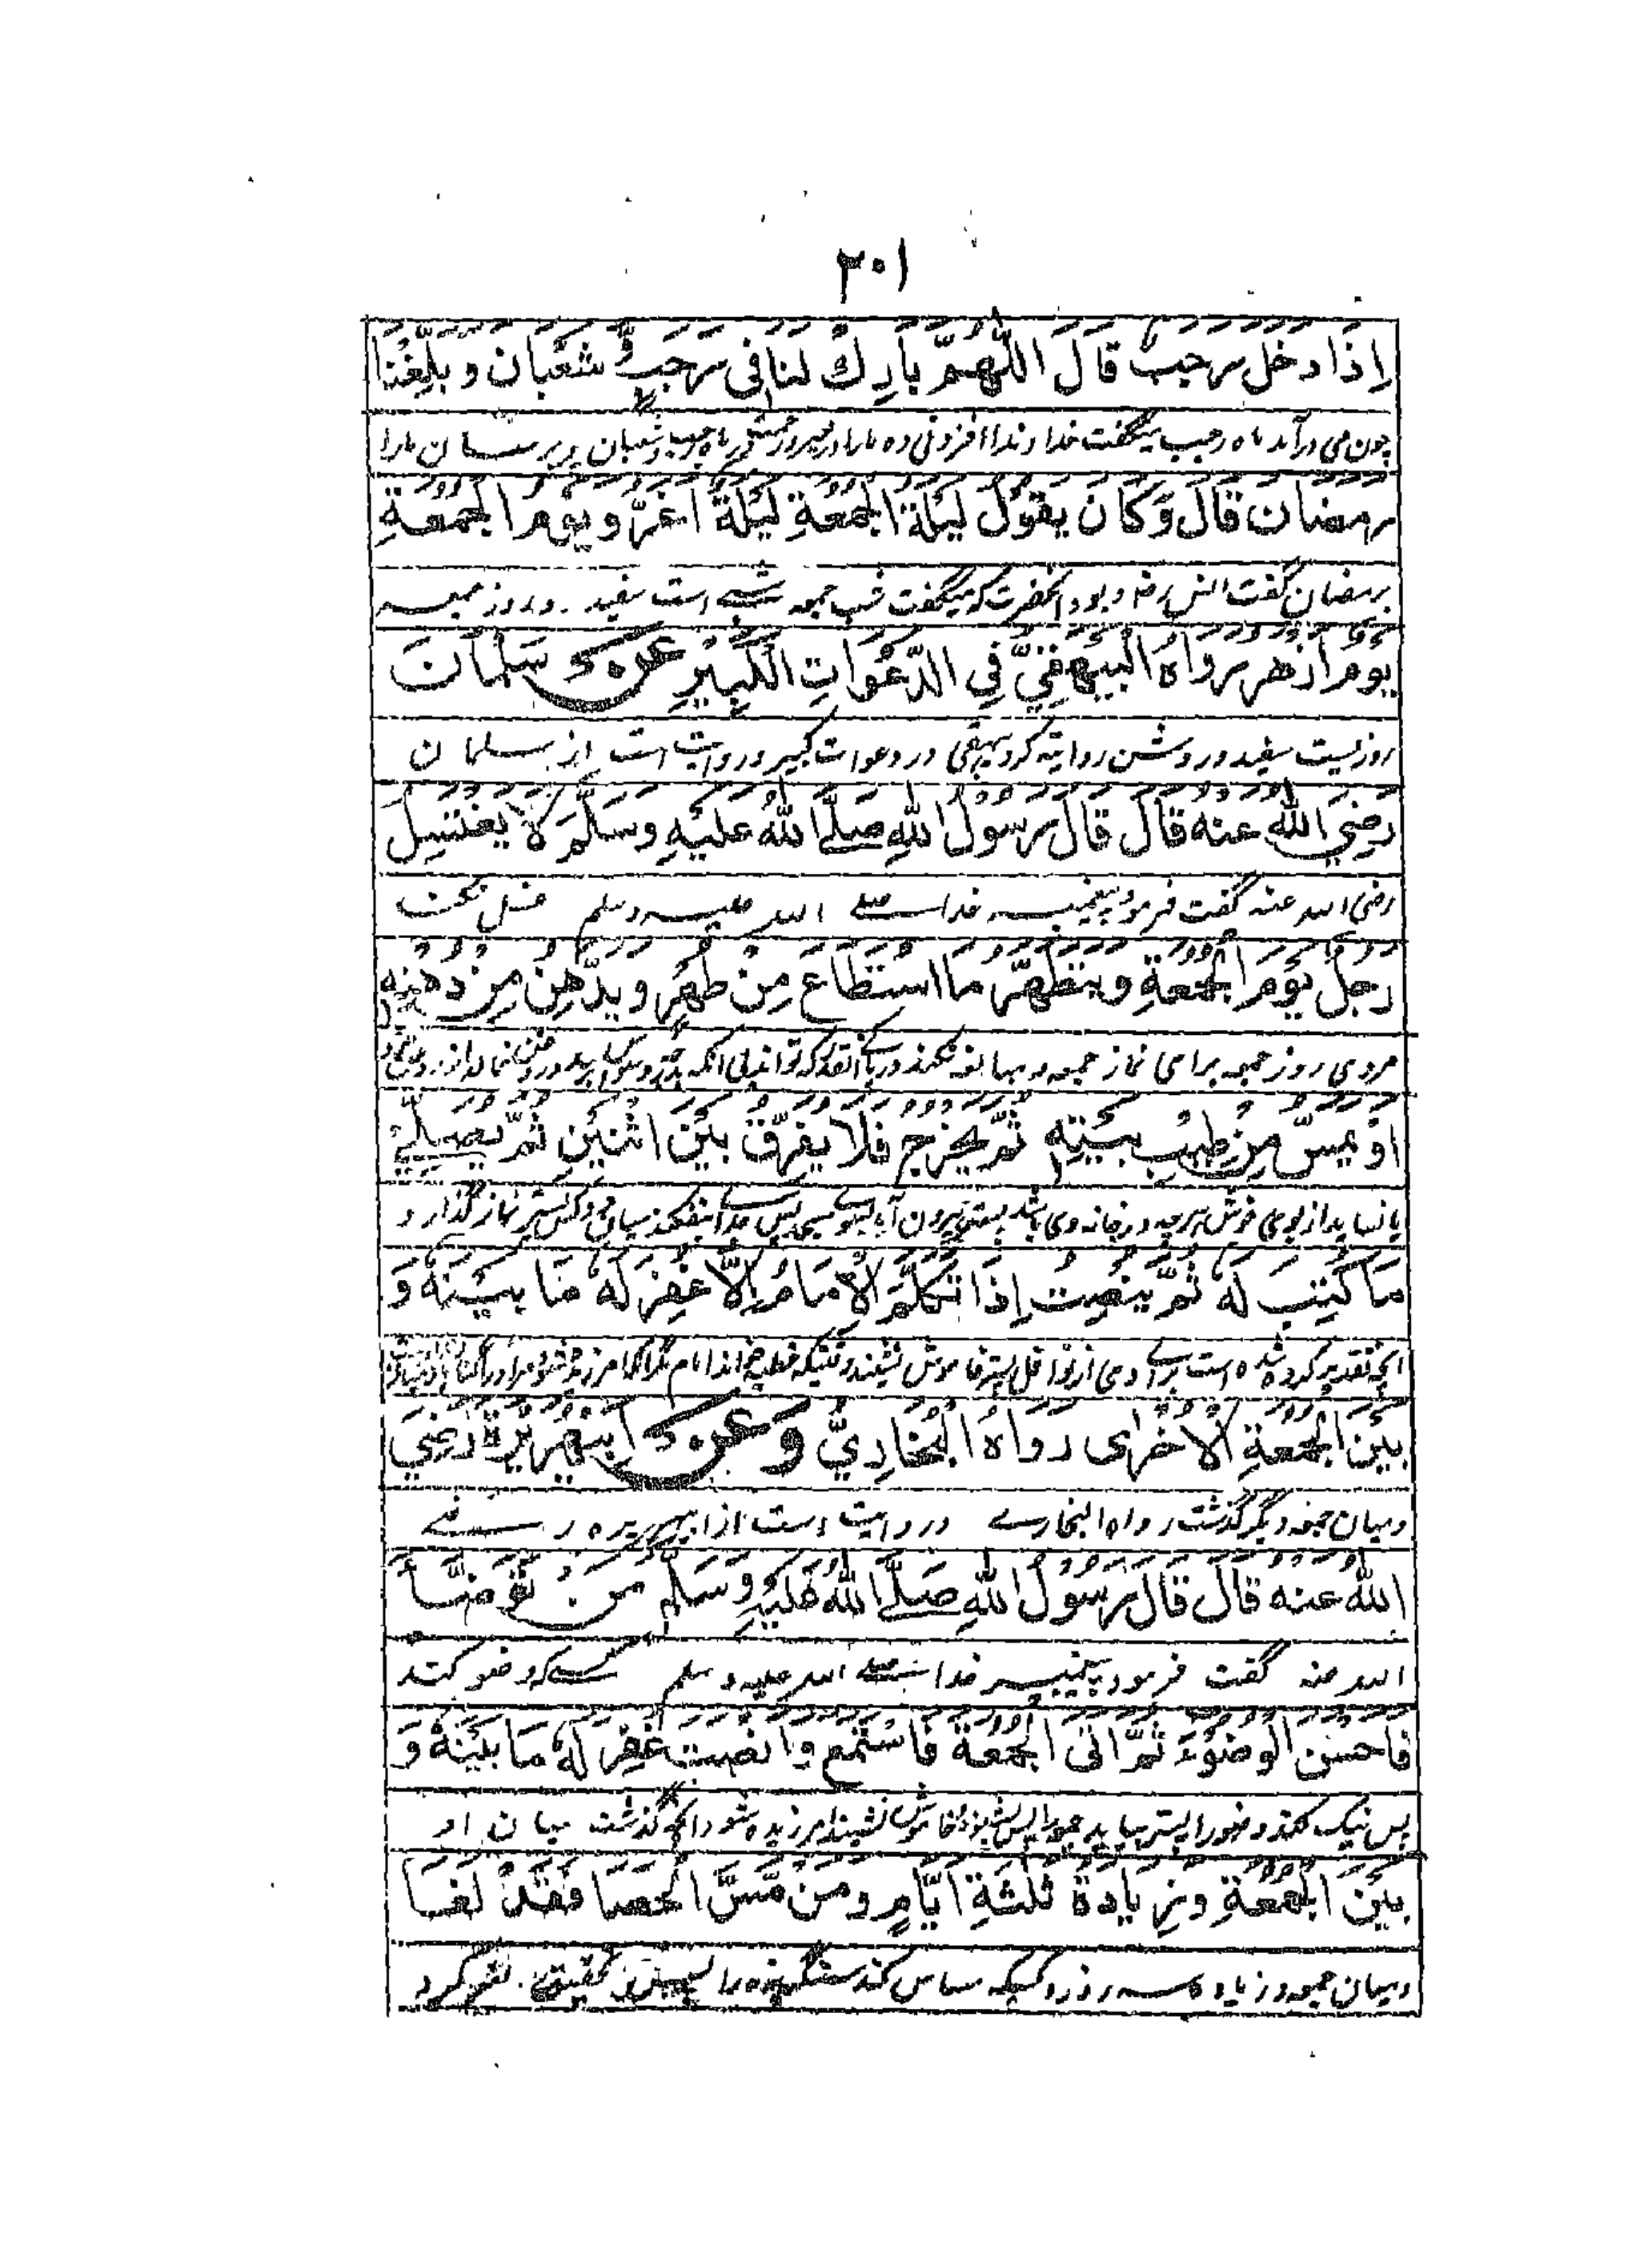 ٣٠١
اِذَا دخل رجب قَالَ اللّٰهُمَّ بارِكْ لنا فى رَجَبٍ وَ شعْبان و بلِّغْنَا
چون می درآمد ماه رجب میگفت خداوندا افزونی ده مارا در ماه رجب و شعبان و برسان مارا
رمضان قَالَ وَكَان يقوْل ليْلَة الجمُعَةِ ليْلَةٌ اَغَرُّ و يوْم الجمُعَةِ
برمضان گفت انس رض و بود آنحضرت که میگفت شب جمعه شبے است سفید و روز جمعه
يوْمٌ ازْهَر رواهُ الْبَيْهَقِيُّ فِى الدَّعْوَاتِ الْكَبِيْرِ عَنْ سَلْمَان
روزیست سفید و روشن روایته کرد بیهقی در دعوات کبیر و روایت است از سلمان
رضِيَ اللّٰهُ عنه قَالَ قَالَ رسُوْل اللّٰهِ صَلَّى اللّٰهُ عليْهِ وَسَلَّمَ لَا يغْتَسِلُ
رضی الله عنه گفت فرمود پیغمبر خدا صلے الله علیه و سلم غسل نکند
رجُلٌ يوْمَ الْجُمُعَةِ و يتطَهَّرُ مَا اسْتَطَاعَ مِنْ طُهْرٍ و يدَّهِنُ مِنْ دُهْنِهِ
مردی روز جمعه برای نماز جمعه و مبالغه نکند در پاکے آنقدر که تواند
اَوْ يَمَسُّ مِنْ طِيْبِ بيْتِهِ ثمَّ يخْرُج فلَا يفرِّقُ بيْنَ اثْنَيْنِ ثُمَّ يُصَلِّيْ
یا نساید از بوی خوش هرچه در خانه وی باشد پستر بیرون آید بسوے مسجد پس جدا نیفکند میان دو کس پستر نماز گذارد
مَا كُتِبَ لَهُ ثُمَّ يُنْصِتُ اِذَا تكَلَّمَ الْاِمَامُ اِلَّا غُفِرَ لَهُ مَا بَيْنَهُ وَ
آنچه تقدیر کرده شده است براے وی از نوافل پستر خاموش نشیند وقتیکه خطبه خواند امام مگر آنکه آمرزیده شود مر او را
بيْنَ الجمعَةِ الْاُخْرٰى روَاهُ الْبُخَارِيُّ وَعَنْ اَبِيْهُرَيْرَةَ رَضِيَ
و میان جمعه دیگر گذشت رواه البخارے و روایت است از ابی هریره رضے
اللّٰهُ عنه قَالَ قَالَ رسُوْل اللّٰهِ صَلَّى اللّٰهُ عَلَيْهِ وَسَلَّمَ مَنْ توَضَّأَ
الله عنه گفت فرمود پیغمبر خدا صلے الله علیه و سلم کسے که وضو کند
فَاَحْسَنَ الْوضُوْءَ ثمَّ اتى الجمُعَةَ فَاسْتَمَعَ وَانْصَتَ غُفِرَ لَهُ مَا بَيْنَهُ وَ
پس نیک کند وضو را پستر بیاید جمعه را پس بشنود و خاموش نشیند آمرزیده شود آنچه گذشت میان او
بيْنَ الجمعَةِ و زيادَة ثلٰثَةِ اَيَّامٍ و من مَّسَّ الْحَصَا فقَدْ لَغَا
و میان جمعه و زیاده سه روز و کسیکه مساس کند سنگریزه را پس بتحقیق لغو کرد